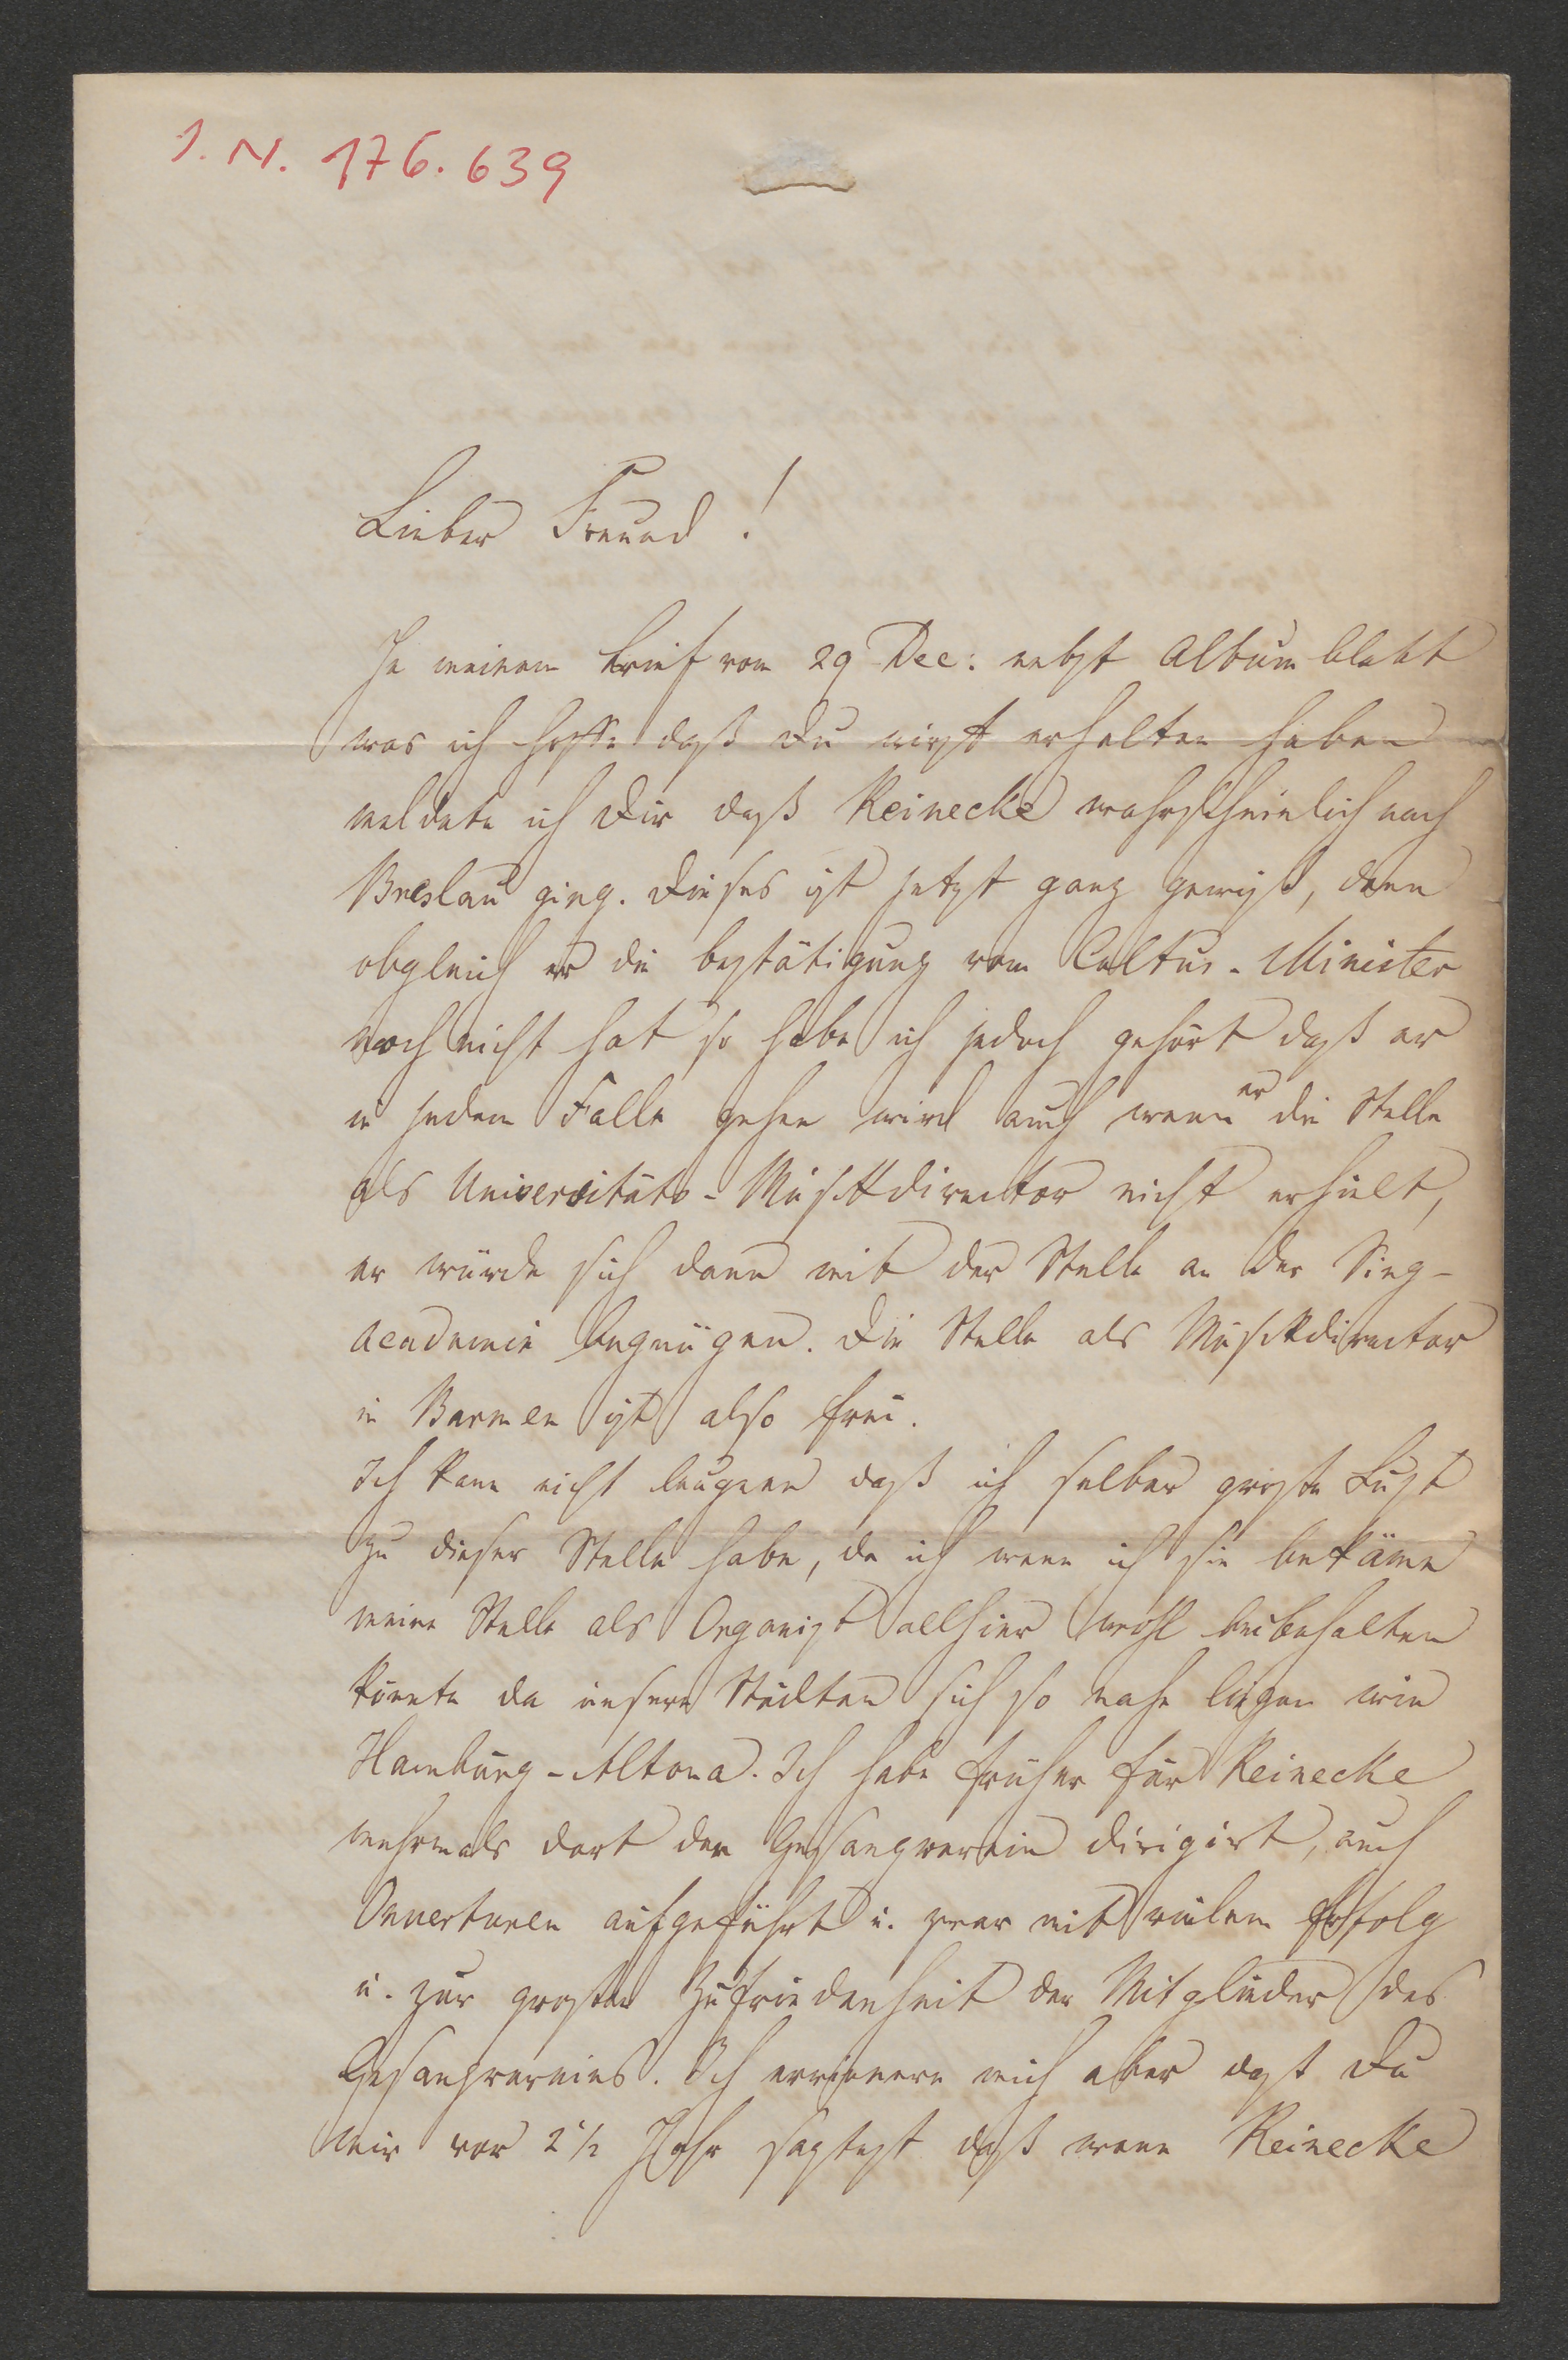 I. N. 176.639
Lieber Freund!
In meinem Brief vom 29 Dec: nebst Albumblatt
was ich hoffe daß Du wirst erhalten haben
meldete ich Dir daß Reinecke wahrscheinlich nach
Breslau ging. Dieses ist jetzt ganz gewiß, denn
obgleich er die Bestätigung vom Cultus-Minister
noch nicht hat so habe ich jedoch gehört daß er
in jedem Falle gehen wird auch wenn er die Stelle
als Universitäts-Musikdirector nicht erhielt,
er würde sich dann mit der Stelle an der Sing-
academie begnügen. Die Stelle als Musikdirector
in Barmen ist also frei.
Ich kann nicht leugnen daß ich selber große Lust
zu dieser Stelle habe, da ich wenn ich sie bekäme
meine Stelle als Organist allhier wohl beibehalten
könnte da unsere Städten sich so nahe liegen wie
Hamburg-Altona. Ich habe früher für Reinecke
mehrmals dort den Gesangverein dirigirt, auch
Ouverturen aufgeführt u. zwar mit vielem Erfolg
u. zur großen Zufriedenheit der Mitglieder des
Gesangvereins. Ich errinnere mich aber dast Du
mir vor 2 1/2 Jahr sagtest daß wenn Reinecke